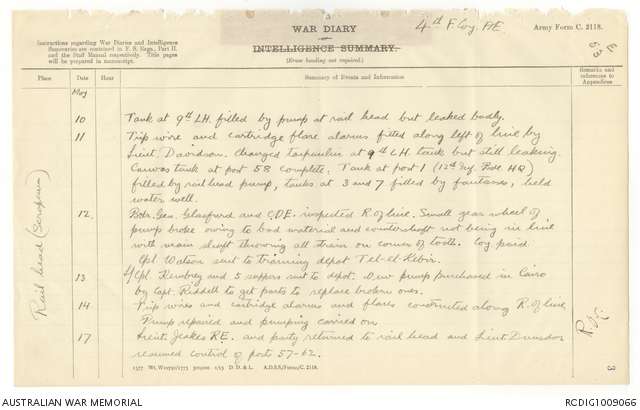 WAR DIARY
or
INTELLIGENCE SUMMARY.
(Erase heading not required.)
4th F. Coy. AE.
Army Form C. 2118.
Instructions regarding War Diaries and Intelligence
Summaries are contained in F. S. Regs., Part II.
and the Staff Manual respectively. Title pages
will be prepared in manuscript.
E
53
Place
Date
Hour
Summary of Events and Information
Remarks and
references to
Appendices
Rail head (Serapeum)
May
10 Tank at 9th LH. filled by pump at rail head but leaked badly.
11 Trip wire and cartridge flare alarms fitted along left of line by
Lieut. Davidson. Changed tarpaulin at 9th LH. tank but still leaking.
Canvas tank at post 58 complete. Tank at post 1 (12th Inf. Bde HQ)
filled by rail head pump, tanks at 3 and 7 filled by fantasses, held
water well.
12. Gen. Glasfurd and CDE. inspected R. of line. Small gear wheel of
pump broke owing to bad material and countershaft not being in line
with main shaft throwing all strain on corner of tooth. Coy paid
Cpl Watson sent to training depot Tel-el-Kebir.
13 and 5 sappers sent to depot. New pump purchased in Cairo
by Capt. Riddell to get parts to replace broken ones.
14 Trip wires and cartridge alarms and flares constructed along R. of line
Pump repaired and pumping carried on.
17 Lieut Jeakes RE. and party returned to rail head and Lieut Dunsdon
resumed control of posts 57-62.
3
1577 Wt. W10791/1773 500,000 1/15 D. D. & L. A.D.S.S./Forms/C. 2118.
AUSTRALIAN WAR MEMORIAL
RCDIG1009066